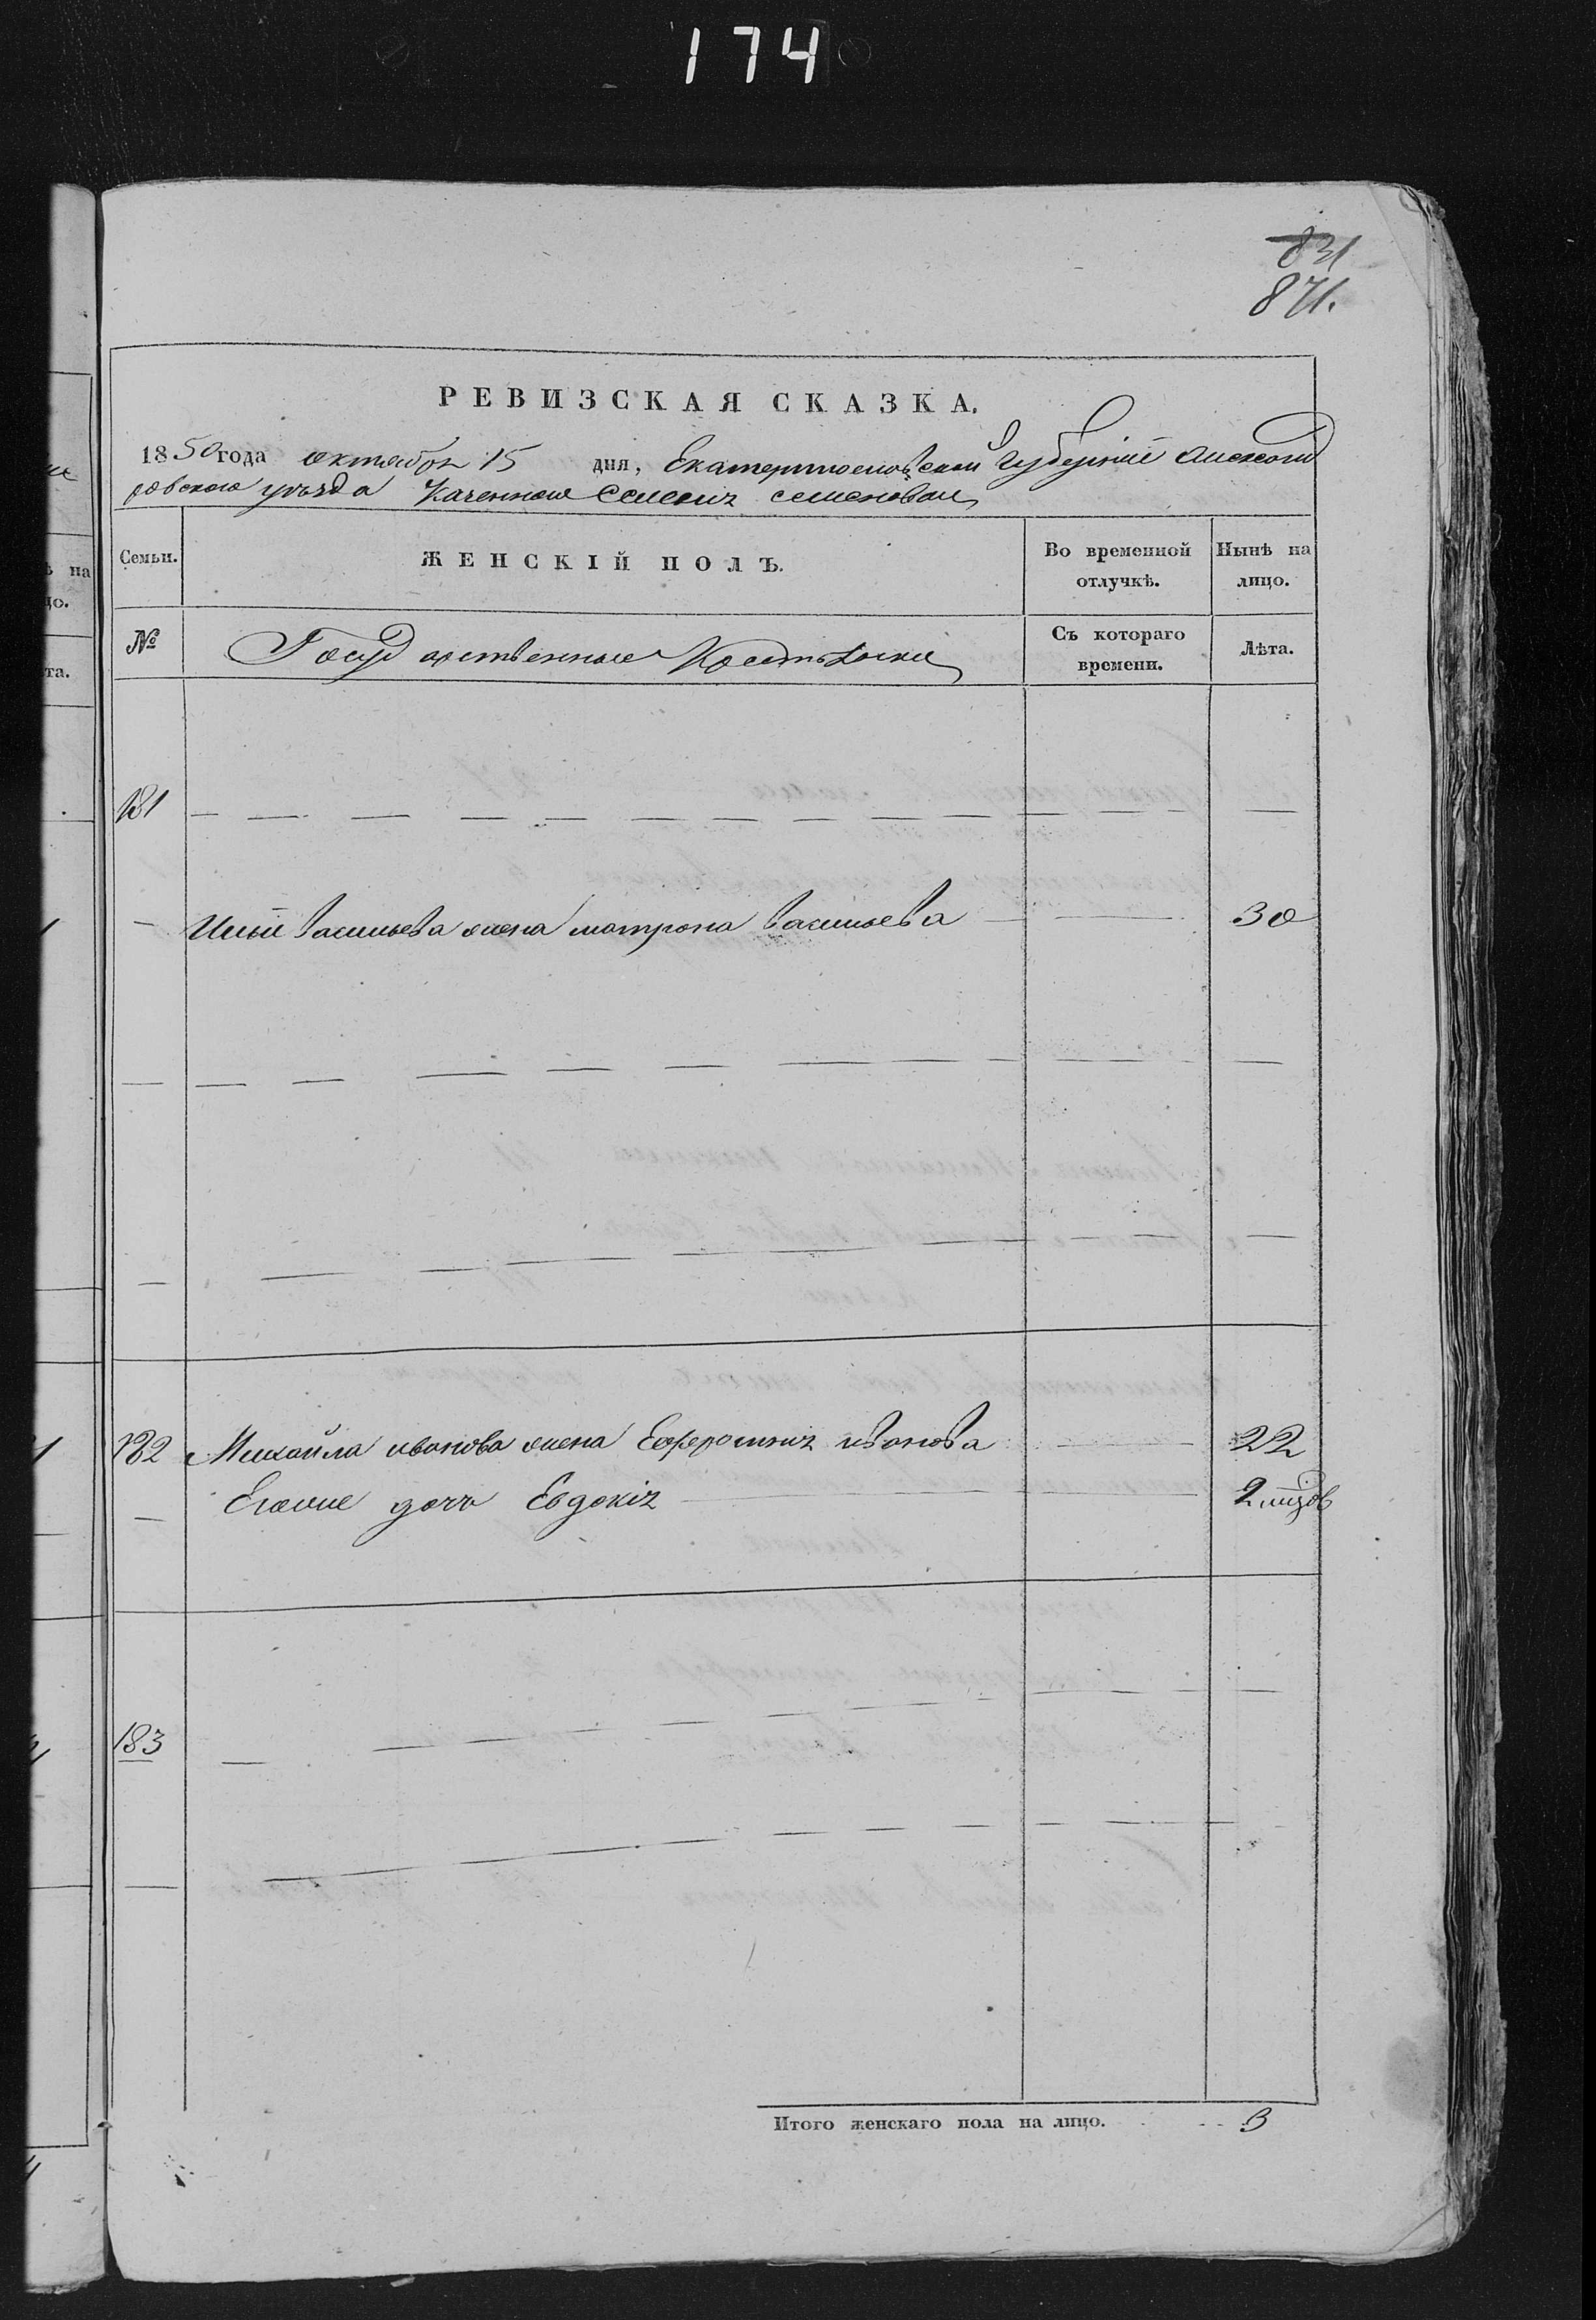 174
831
871.
РЕВИЗСКАЯ СКАЗКА.
1850 года октября 15 дня, Екатеринославской Губерніи Александ
ровского уезда Казенного Селенія Семеновки
Семьи.
ЖЕНСКІЙ ПОЛЪ.
Во временной отлучкѣ.
Нынѣ на лицо.
№
Государственные Крестьяне
Съ котораго времени.
Лѣта.
181
Ильи Васильева жена Матрона Васильева 30
182 Михайла Иванова жена Ефросинія Иванова 22
Егоже дочь Евдокія 2
183
Итого женскаго пола на лицо. 3